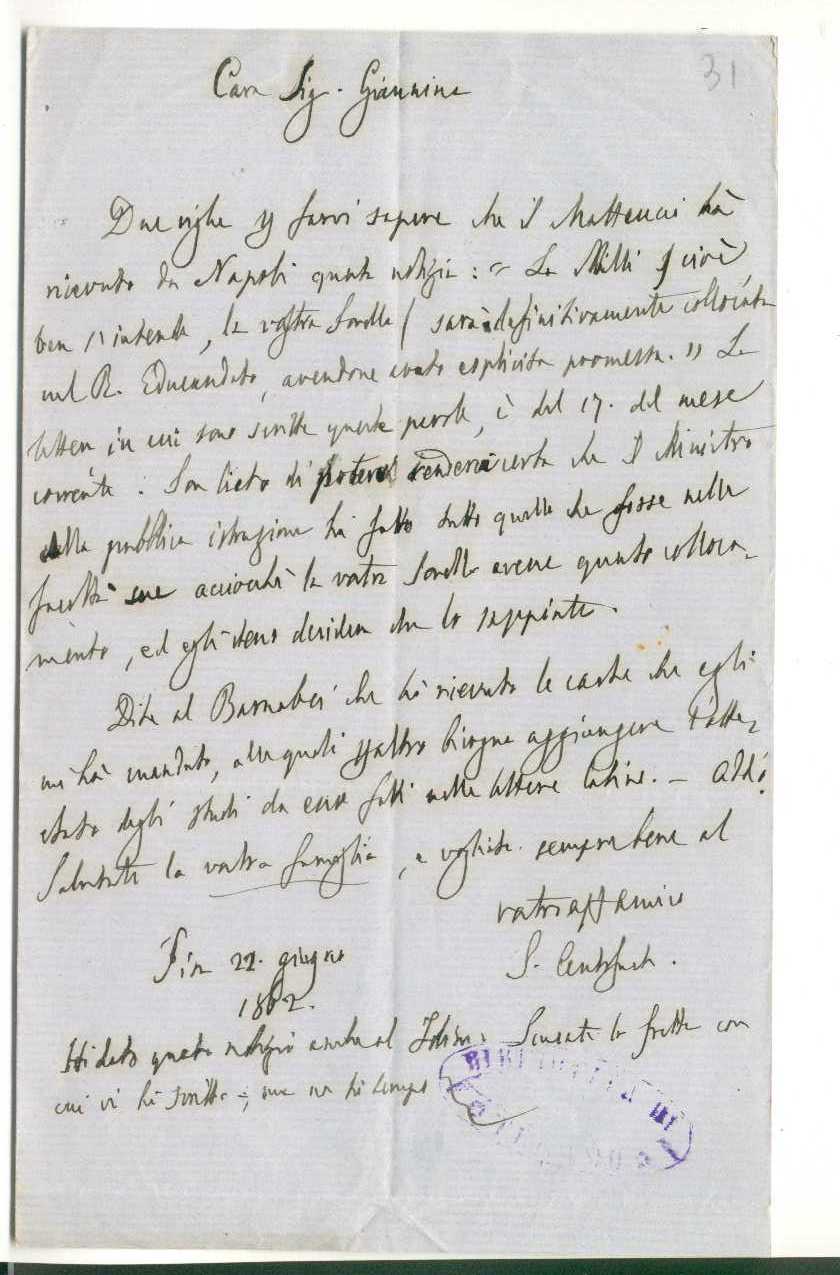 31
Cara Sig. Giannina
Due righe p farvi sapere che il Matteucci hà
ricevuto da Napoli questa notizia: „ La Milli (cioè,
ben s'intende, la vostra Sorella) sarà definitivamente collocata
nel R. Educandato, avendone avuto esplicita promessa. „ La
lettera in cui sono scritte queste parole, è del 17. del mese
corrente. Son lieto di potervi render certa che il Ministro
della pubblica istruzione hà fatto tutto quello che fosse nelle
facoltà sue acciocchè la vostra Sorella avesse questo colloca-
mento, ed egli stesso desidera che lo sappiate.
Dite al Barnabei che hò ricevuto le carte che egli
mi hà mandato, alle quali peraltro bisogna aggiungere l'atte-
stato degli studi da esso fatti nelle lettere latine. — Addio.
Salutate la vostra famiglia, e vogliate sempre bene al
vostro aff amico
S. Centofanti.
22. giugno
1862.
Hò dato questa notizia anche al Scusate la fretta con
cui vi hò scritto; ma non hò tempo
BIBLIOTECA